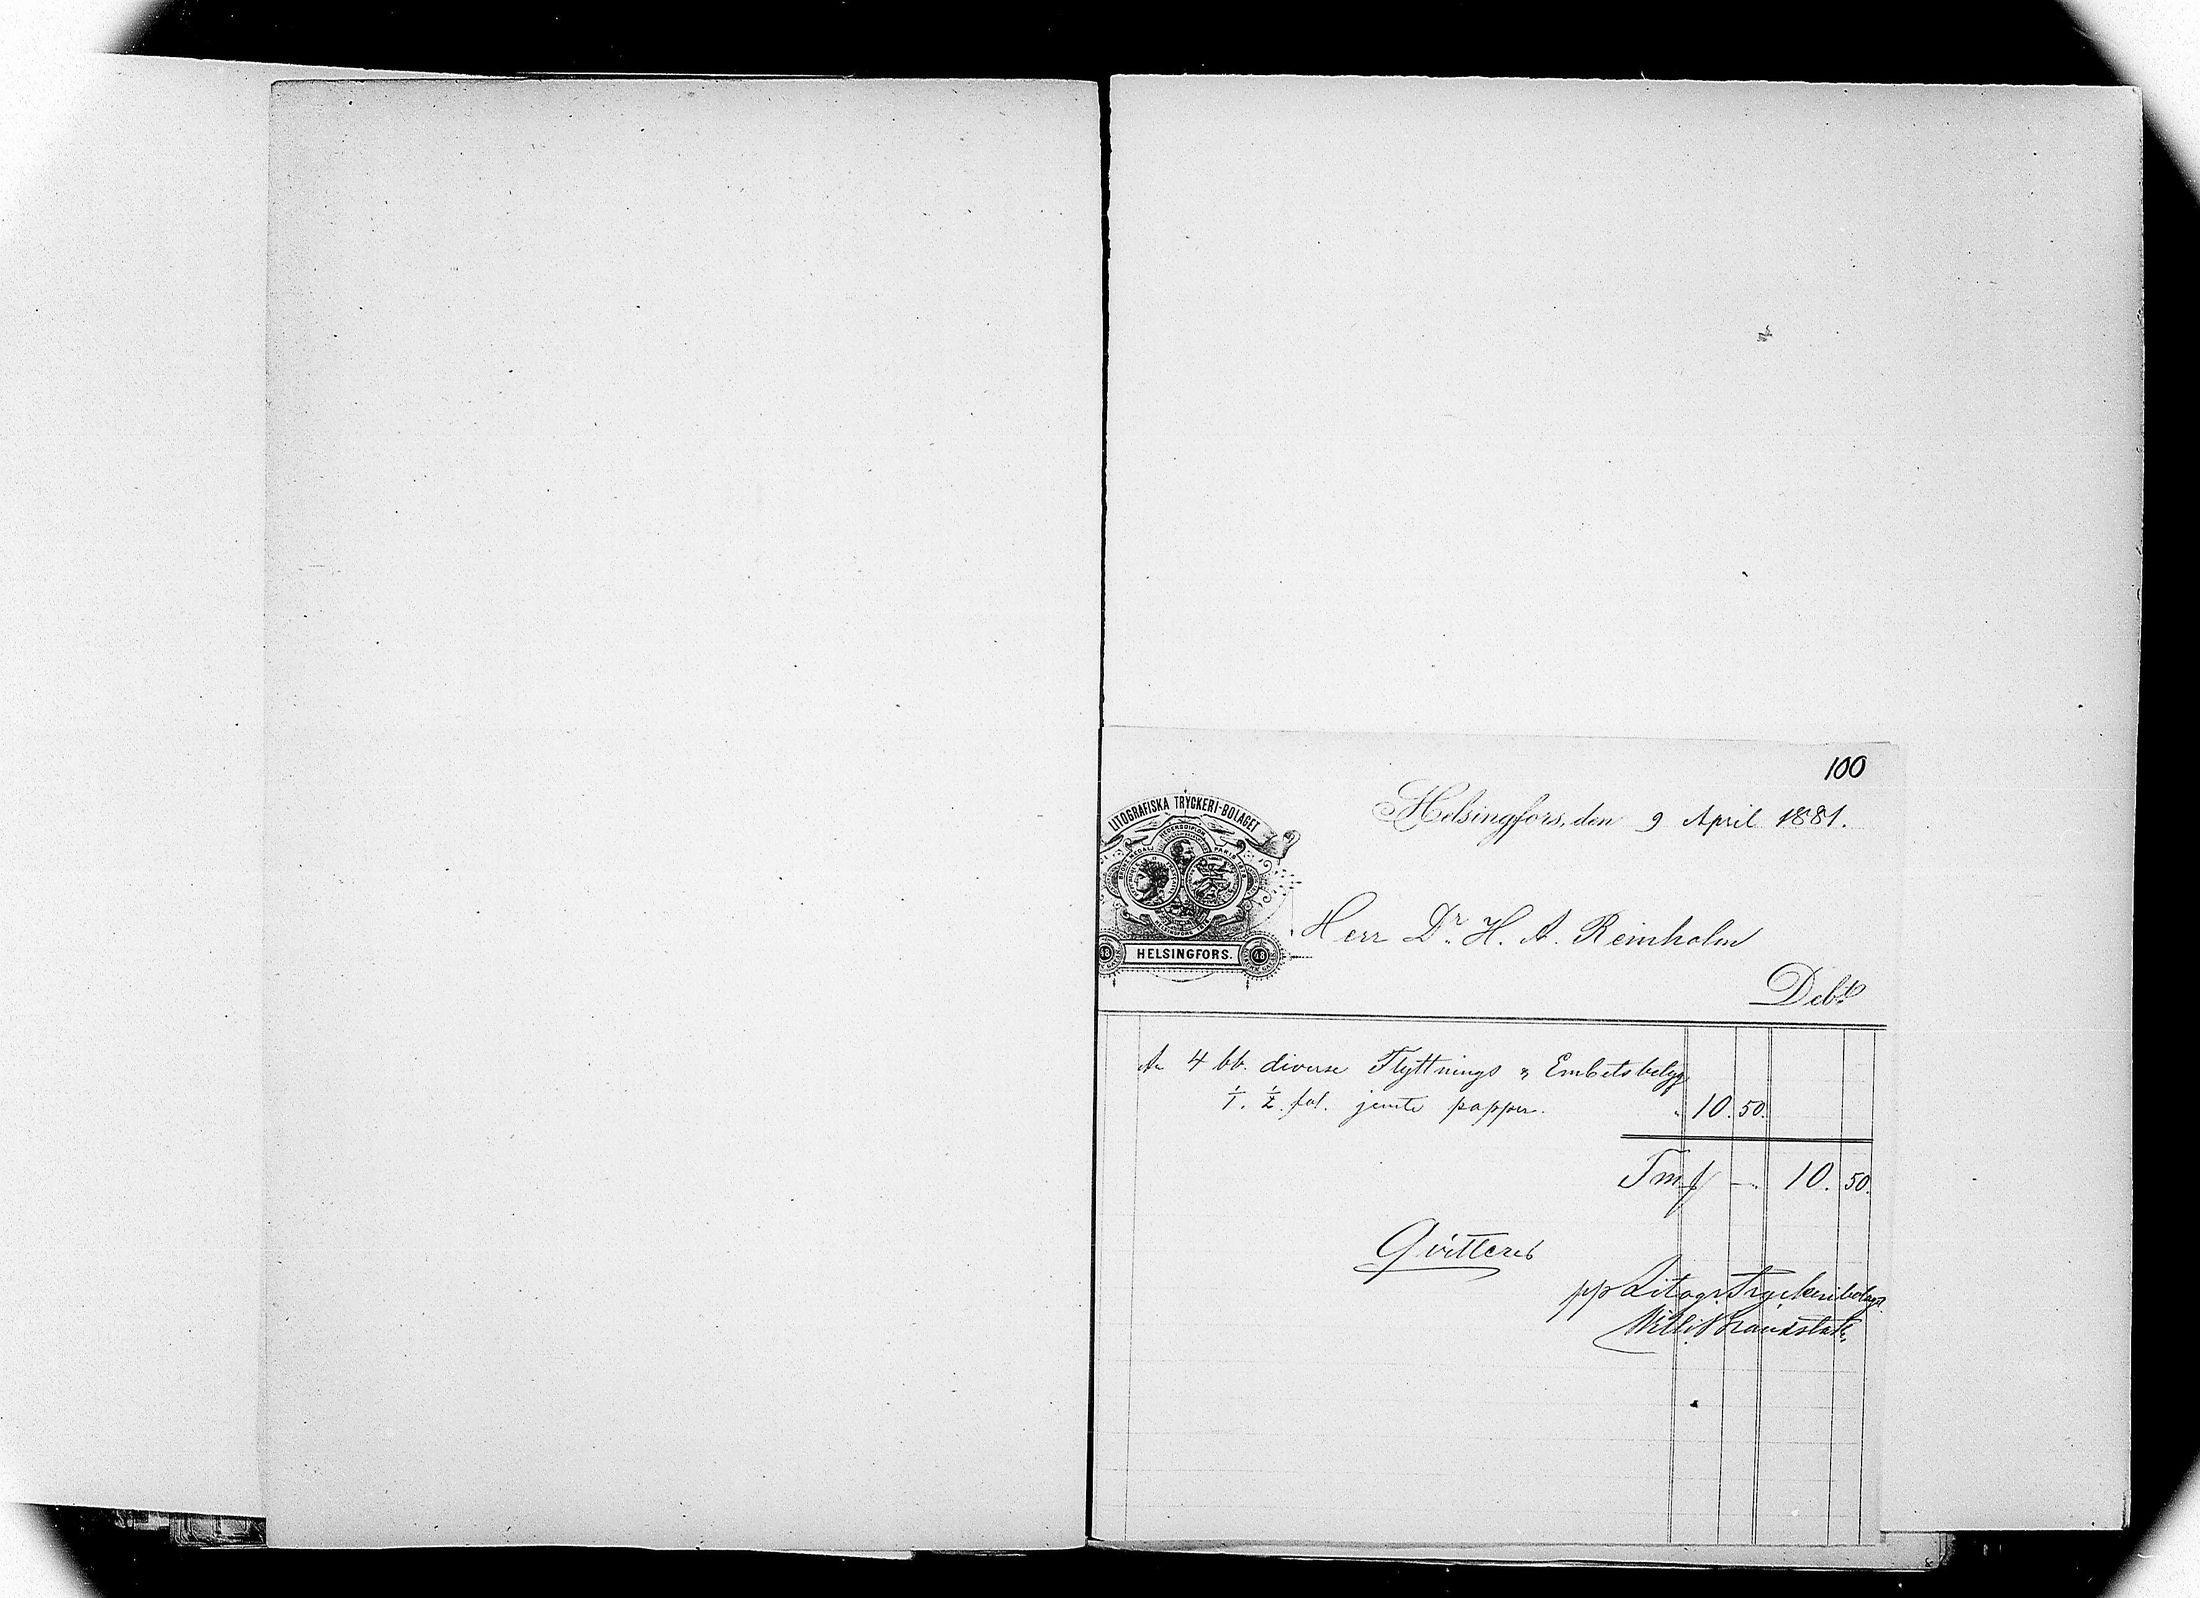 100
LITOGRAFISKA TRYCKERI-BOLAGET
HELSINGFORS.
Helsingfors, den 9 April 1881.
Herr Dr. H. A. Reinholm
Debt
An 4 bb. diverse Flyttnings & Embetsbetyg
1/1. 1/2 fol. jemte papper. 10. 50.
Fmf — 10. 50.
Qvitteras
pp Litogr. Tryckeribolaget